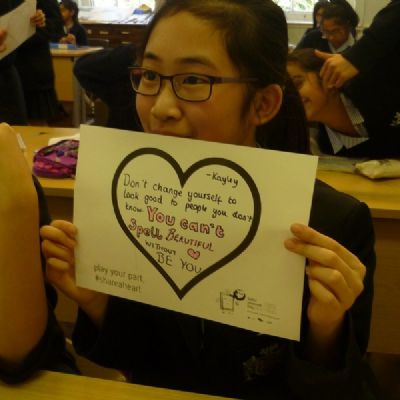 -Kayley
Don't change yourself to
look good to people you don't
know You can't
Spell BEAUTIFUL
WITHOUT
BE YOU
play your part.
#shareaheart